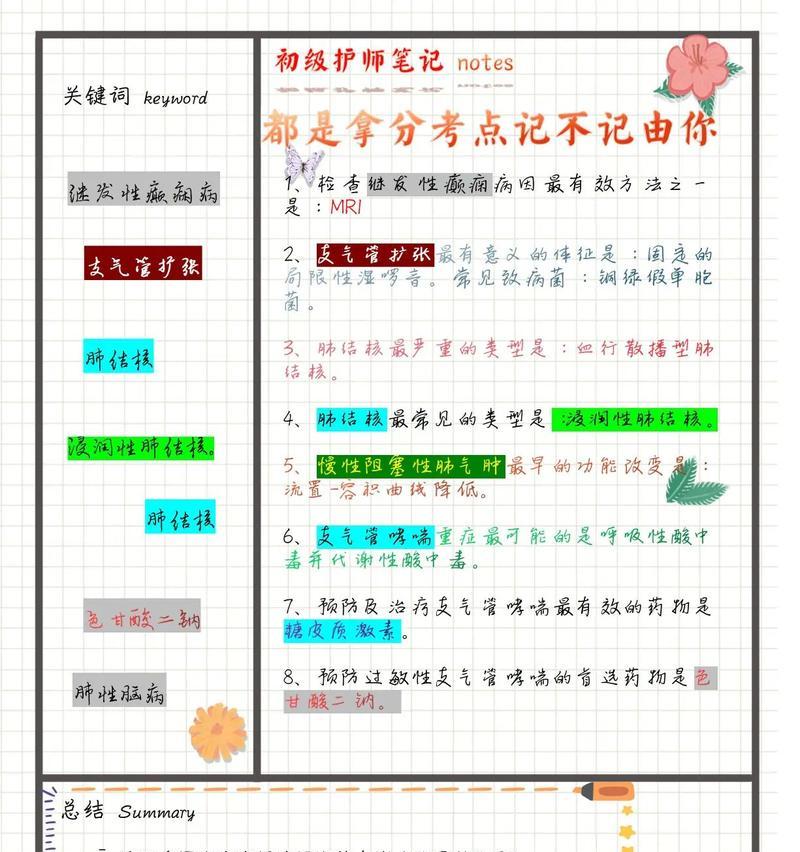 关键词 keyword
继发性癫痫病
支气管扩张
肺结核
浸润性肺结核。
肺结核
色甘酸二钠
肺性脑病
初级护师笔记 notes
都是拿分考点记不记由你
1、检查继发性癫痫病因最有效方法之一
是：MRI
2、支气管扩张最有意义的体征是：固定的
局限性湿啰音。常见致病菌：铜绿假单胞
菌。
3、肺结核最严重的类型是：血行散播型肺
结核。
4、肺结核最常见的类型是：浸润性肺结核。
5、慢性阻塞性肺气肿最早的功能改变是：
流置-容积曲线降低。
6、支气管哮喘重症最可能的是呼吸性酸中
毒并代谢性酸中毒。
7、预防及治疗支气管哮喘最有效的药物是
糖皮质激素。
8、预防过敏性支气管哮喘的首选药物是色
甘酸二钠。
总结 Summary